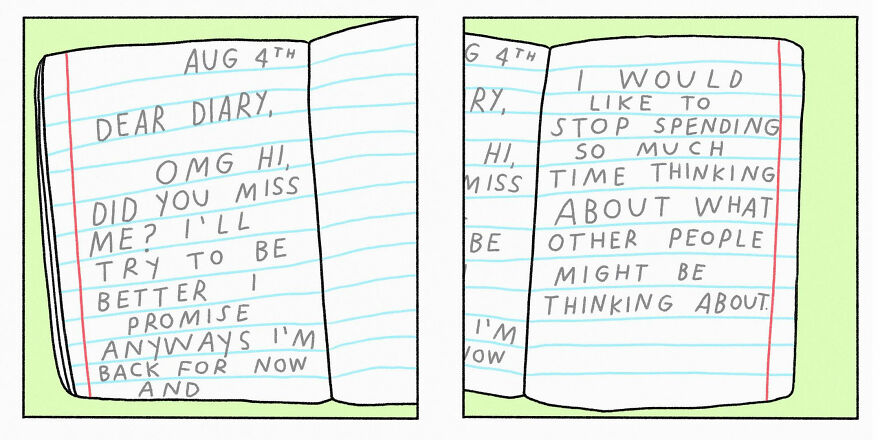 AUG 4TH
DEAR DIARY,
OMG HI,
DID YOU MISS
ME? I'LL
TRY TO BE
BETTER I
PROMISE
ANYWAYS I'M
BACK FOR NOW
AND
G 4TH
RY,
HI,
MISS
BE
I'M
NOW
I WOULD
LIKE TO
STOP SPENDING
SO MUCH
TIME THINKING
ABOUT WHAT
OTHER PEOPLE
MIGHT BE
THINKING ABOUT.